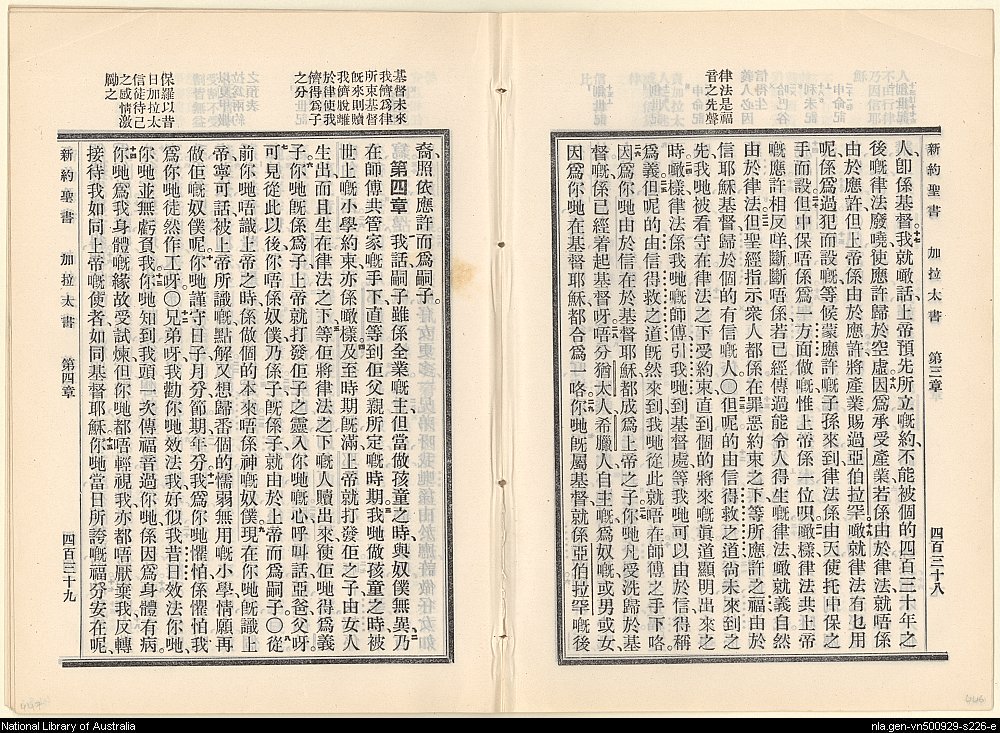 新約聖書 加拉太書 第三章 四百三十八
律法是福
音之先聲
人卽係基督我就噉話上帝預先所立嘅約不能被個的四百三十年之
後嘅律法廢曉使應許歸於空虛因爲承受產業若係由於律法就唔係
由於應許但上帝係由於應許將產業賜過亞伯拉罕噉就律法有乜用
呢係爲過犯而設嘅等候蒙應許嘅子孫來到律法係由天使托中保之
手而設但中保唔係爲一方面做嘅惟上帝係一位呀噉樣律法共上帝
嘅應許相反咩斷斷唔係若已經傳過能令人得生嘅律法噉就義自然
由於律法但聖經指示衆人都係在罪惡約束之下等所應許之福由於
信耶穌基督歸於個的有信嘅人〇但呢的由信得救之道尚未來到之
先我哋被看守在律法之下受約束直到個的將來嘅眞道顯明出來之
時噉樣律法係我哋嘅師傅引我哋到基督處等我哋可以由於信得稱
爲義但呢的由信得救之道旣然來到我哋從此就唔在師傅之手下咯
因爲你哋由於信在於基督耶穌都成爲上帝之子你哋凡受洗歸於基
督嘅係已經着起基督呀唔分猶太人希臘人自主嘅爲奴嘅或男或女
因爲你哋在基督耶穌都合爲一咯你哋旣屬基督就係亞伯拉罕嘅後
裔照依應許而爲嗣子。
第四章 我話嗣子雖係全業嘅主但當做孩童之時與奴僕無異乃
在師傅共管家嘅手下直等到佢父親所定嘅時期我哋做孩童之時被
世上嘅小學約束亦係噉樣及至時期旣滿上帝就打發佢之子由女人
生出而且生在律法之下等佢將律法之下嘅人贖出來使佢哋得爲義
子你哋旣係爲子上帝就打發佢子之靈入你哋嘅心呼叫話亞爸父呀
可見從此以後你唔係奴僕乃係子旣係子就由於上帝而爲嗣子〇從
前你哋唔識上帝之時係做個的本來唔係神嘅奴僕現在你哋旣識上
帝寧可話被上帝所識嘅點解又想歸番個的懦弱無用嘅小學情願再
做佢嘅奴僕呢你哋謹守日子月分節期年分我爲你哋懼怕係懼怕我
爲你哋徒然作工呀〇兄弟呀我勸你哋效法我好似我昔日效法你哋
你哋並無虧負我你哋知到我頭一次傳福音過你哋係因爲身體有病
你哋爲我身體嘅緣故受試煉但你哋都唔輕視我亦都唔厭棄我反轉
接待我如同上帝嘅使者如同基督耶穌你哋當日所誇嘅福分安在呢
基督未來
我儕爲律
所束基督
旣來則贖
我儕脫離
於律使我
儕得爲子
之分
保羅以昔
日加拉太
信徒待己
之感情激
勵之
新約聖書 加拉太書 第四章 四百三十九
National Library of Australia
nla.gen-vn500929-s226-e